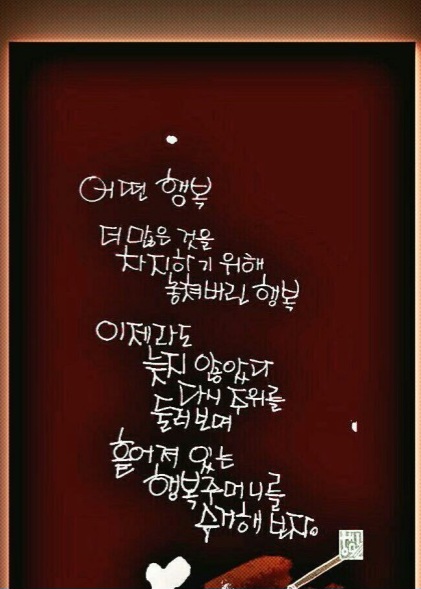 어떤 행복
더 많은 것을
차지하기 위해
놓쳐버린 행복
이제라도
늦지 않았다
다시 주위를
둘러보며
흩어져 있는
행복주머니를
수거해 보자.